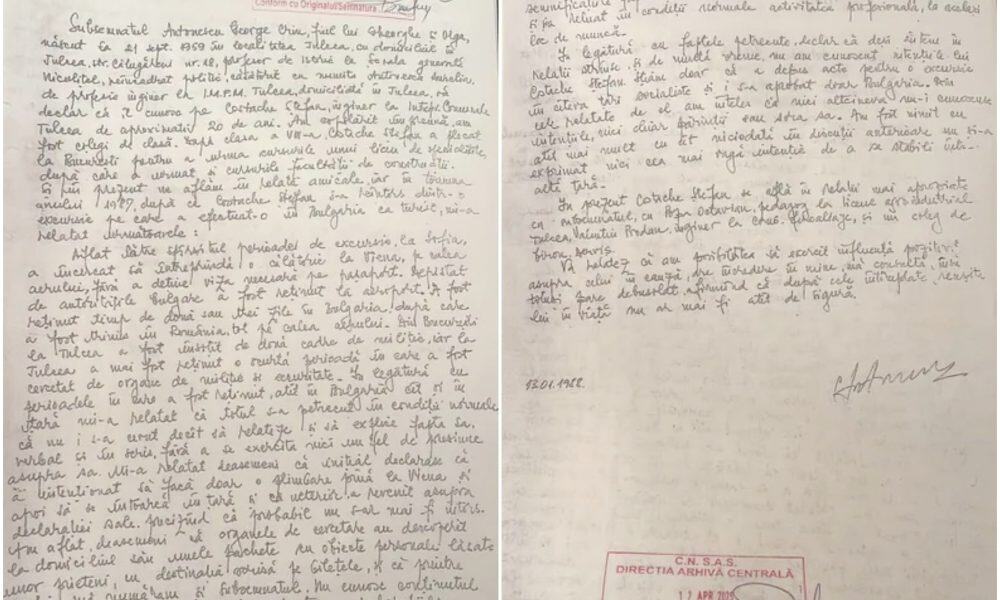 Conform cu Originalul Semnatura
Subsemnatul Antonescu George Crin, fiul lui Gheorghe și Olga,
născut la 21 sept. 1959 în localitatea Tulcea, cu domiciliul în
Tulcea, str. nr. 18, profesor de istorie la Școala generală
Niculițel, neîncadrat politic, căsătorit cu numita Antonescu Aurelia,
de profesie inginer la I.M.P.M. Tulcea, domiciliată în Tulcea, vă
declar că îl cunosc pe Costache Ștefan, inginer la Intepr. Comunală
Tulcea de aproximativ 20 de ani. Am copilărit împreună, am
fost colegi de clasă. După clasa a VIII-a, Costache Ștefan a plecat
la București pentru a urma cursurile unui liceu de specialitate,
după care a urmat și cursurile facultății de construcții.
Și în prezent ne aflăm în relații amicale, iar în toamna
anului 1987, după ce Costache Ștefan s-a reîntors dintr-o
excursie pe care a efectuat-o în Bulgaria ca turist, mi-a
relatat următoarele:
Aflat către sfîrșitul perioadei de excursie, la Sofia,
a încercat să întreprindă o călătorie la Viena, pe calea
aerului, fără a deține viza necesară pe pașaport. Depistat
de autoritățile bulgare a fost reținut la aeroport. A fost
reținut timp de două sau trei zile în Bulgaria, după care
a fost trimis în România, tot pe calea aerului. Din București
la Tulcea a fost însoțit de două cadre de miliție, iar la
Tulcea a mai fost reținut o scurtă perioadă în care a fost
cercetat de organe de miliție și securitate. În legătură cu
perioadele în care a fost reținut, atît în Bulgaria cît și în
țară mi-a relatat că totul s-a petrecut în condiții normale
că nu i s-a cerut decît să relateze și să explice fapta sa,
verbal și în scris, fără a se exercita nici un fel de presiune
asupra sa. Mi-a relatat deasemeni că inițial declarase că
a intenționat să facă doar o plimbare pînă la Viena și
apoi să se întoarcă în țară și că ulterior a revenit asupra
declarației sale, precizînd că probabil nu s-ar mai fi întors.
Am aflat, deasemeni că organele de cercetare au descoperit
la domiciliul său unele pachete cu obiecte personale lăsate
unor prieteni, cu destinația scrisă pe bilețele, și că printre
mă număram și subsemnatul. Nu cunosc conținutul
semnificațiile
și-a reluat în condiții normale activitatea profesională, la același
loc de muncă.
În legătură cu faptele petrecute, declar că deși sîntem în
relații strînse, și de multă vreme, nu am cunoscut intențiile lui
Costache Ștefan. Știam doar că a depus acte pentru o excursie
în cîteva țări socialiste și i s-a aprobat doar Bulgaria. Din
cele relatate de el am înțeles că nici altcineva nu-i cunoscuse
intențiile, nici chiar părinții sau sora sa. Am fost uimit cu
atît mai mult cu cît niciodată în discuții anterioare nu și-a
exprimat nici cea mai vagă intenție de a se stabili într-
altă țară.
În prezent Costache Ștefan se află în relații mai apropiate
cu subsemnatul, cu Popa Octavian, pedagog la liceul agroindustrial
Tulcea, Valentin Prodan, inginer la și un coleg de
birou,
Vă relatez că am posibilitatea să exercit influență pozitivă
asupra celui în cauză, are încredere în mine, mă consultă, însă
totuși pare debusolat, afirmînd că după cele întîmplate, reușita
lui în viață nu ar mai fi atît de sigură.
13.01.1988.
C.N.S.A.S.
DIRECȚIA ARHIVĂ CENTRALĂ
12 APR 202